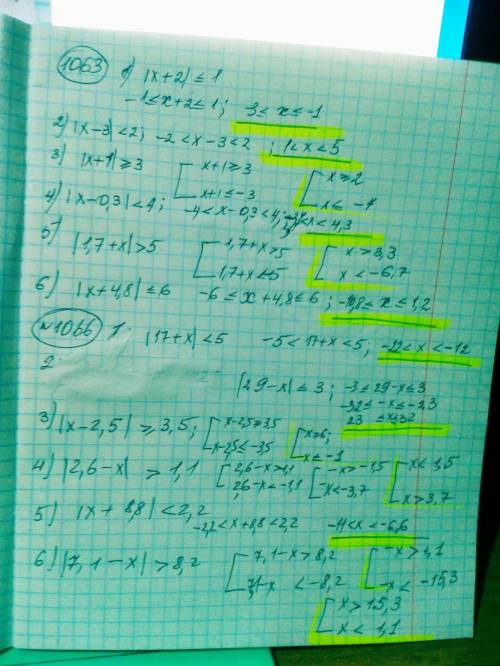 1063 1) |x+2| ≤ 1
-1 ≤ x+2 ≤ 1; 3 ≤ x ≤ -1
2) |x-3| < 2; -2 < x-3 < 2; 1 < x < 5
3) |x+1| ≥ 3 [ x+1 ≥ 3 [ x ≥ 2
x+1 ≤ -3 x ≤ -4
4) |x-0,3| < 4; -4 < x-0,3 < 4; < x < 4,3
5) |1,7+x| > 5 [ 1,7+x > 5 [ x > 3,3
1,7+x < 5 x < -6,7
6) |x+4,8| ≤ 6 -6 ≤ x+4,8 ≤ 6; -10,8 ≤ x ≤ 1,2
№1066 1. |17+x| < 5 -5 < 17+x < 5; -22 < x < -12
2. |29-x| ≤ 3; -3 ≤ 29-x ≤ 3
-32 ≤ -x ≤ -23
23 ≤ x ≤ 32
3) |x-2,5| ≥ 3,5; [ x-2,5 ≥ 3,5 [ x ≥ 6;
x-2,5 ≤ -3,5 x ≤ -1
4) |2,6-x| > 1,1 [ 2,6-x > 1,1 [ -x > -1,5 [ x < 1,5
2,6-x < -1,1 -x < -3,7 x > 3,7
5) |x+8,8| < 2,2
-2,2 < x+8,8 < 2,2 -11 < x < -6,6
6) |7,1-x| > 8,2 [ 7,1-x > 8,2 [ -x > 1,1
7,1-x < -8,2 -x < -15,3
[ x > 15,3
x < 1,1